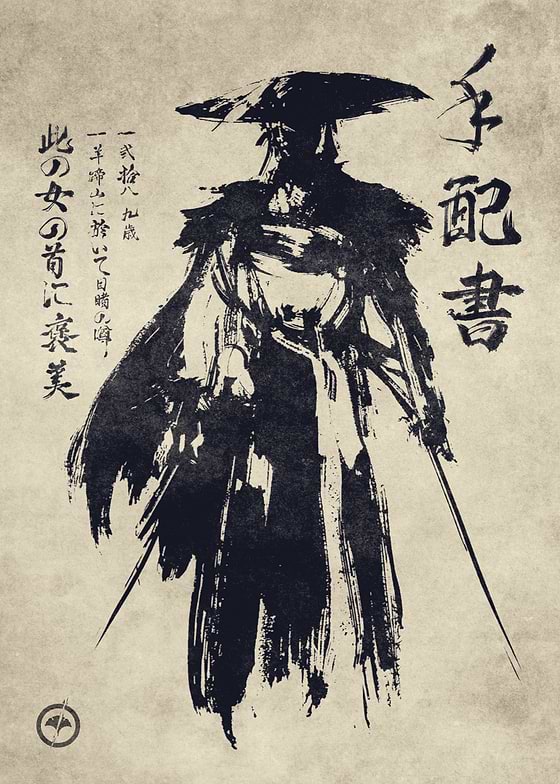 手配書
一弐拾八九歳
一羊蹄山に於いて目睹の噂，
此の女の首に褒美